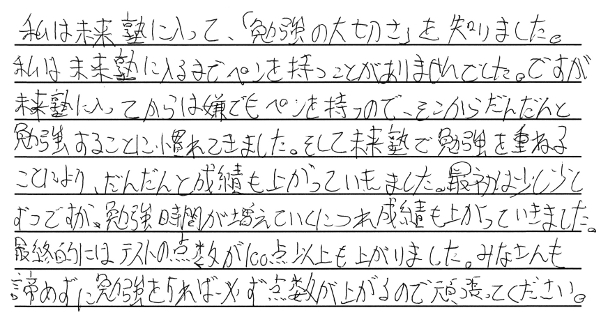 私は未来塾に入って、「勉強の大切さ」を知りました。
私は未来塾に入るまでペンを持つことがありませんでした。ですが
未来塾に入ってからは嫌でもペンを持つので、そこからだんだんと
勉強することに慣れてきました。そして未来塾で勉強を重ねる
ことにより、だんだんと成績も上がっていきました。最初は少し少し
ずつですが、勉強時間が増えていくにつれ成績も上がっていきました。
最終的にはテストの点数が100点以上も上がりました。みなさんも
諦めずに勉強をすれば必ず点数が上がるので頑張ってください。